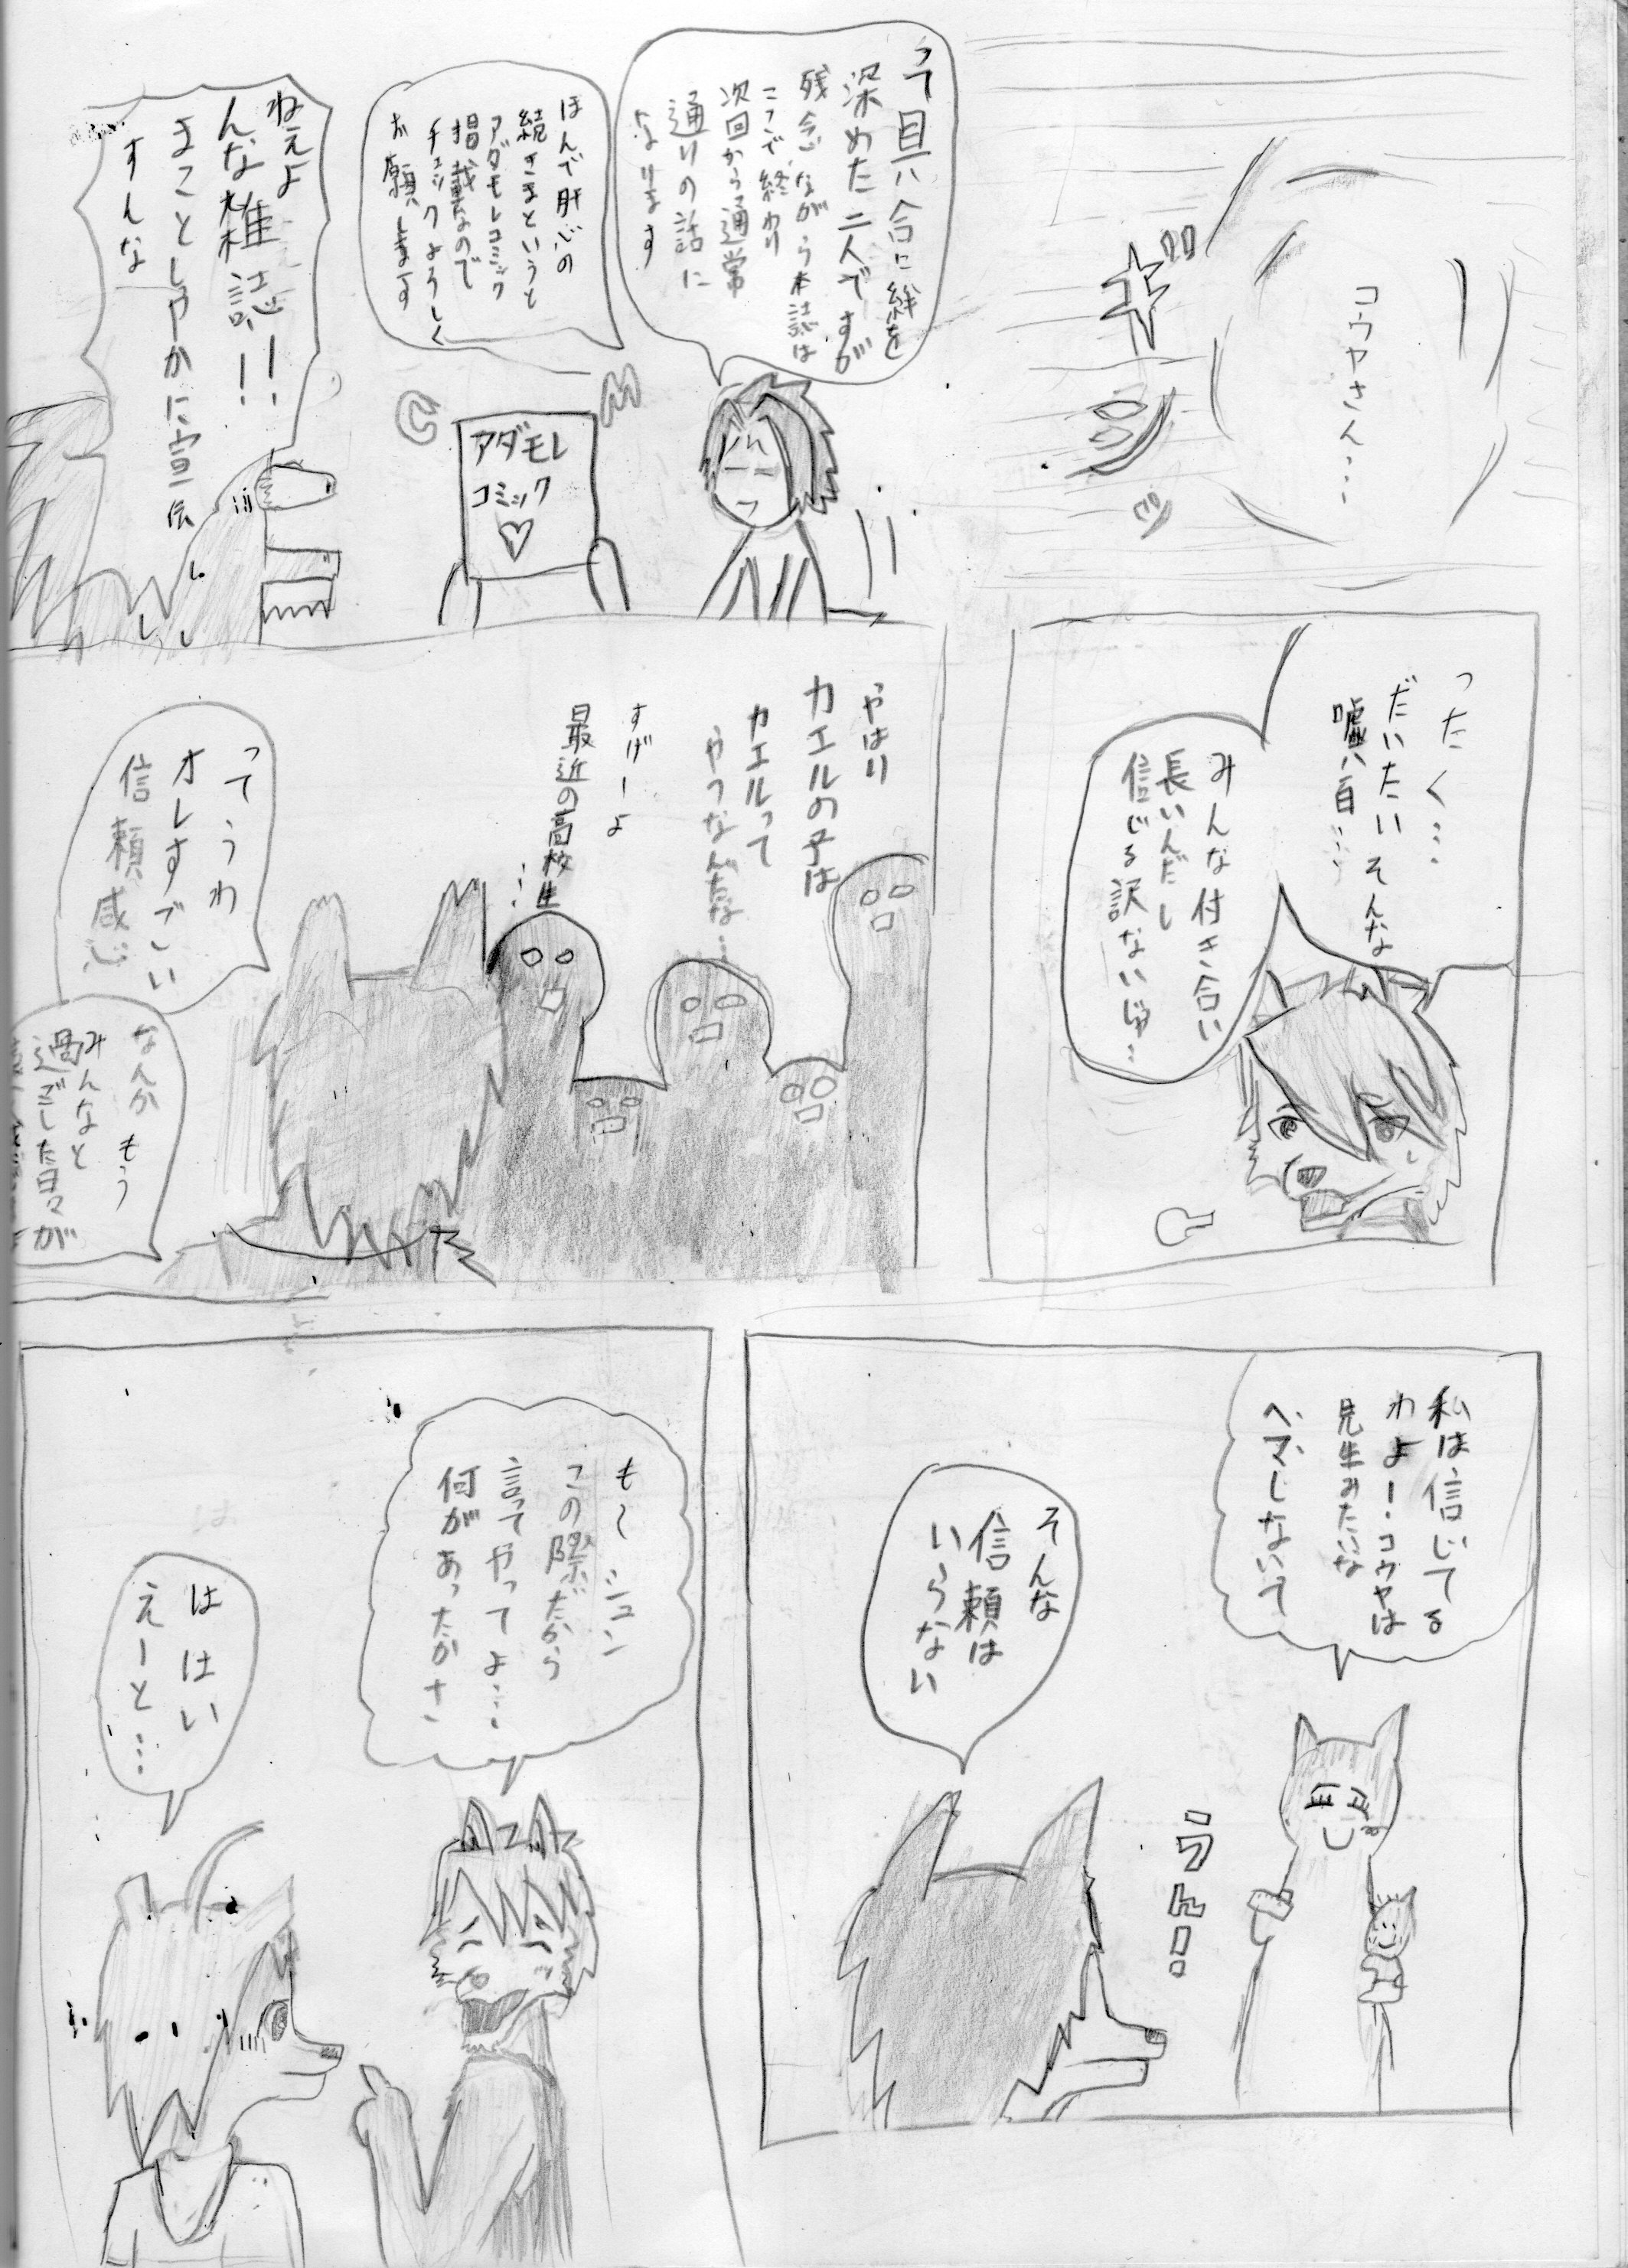 コウヤさん…
ギロ
って具合に絆を
深めた二人ですが
残念ながら本誌は
ここで終わり
次回から通常
通りの話に
なります
ほんで肝心の
続きはというと
アダモレコミック
掲載なので
チェックよろしく
お願いします
CM
アダモレ
コミック
♡
ねぇよ
んな雑誌!!
まことしやかに宣伝
すんな
ったく…
だいたいそんな
嘘八百…
みんな付き合い
長いんだし
信じる訳ないじゃ…
やはり
カエルの子は
カエルって
やつなんだな…
すげーよ
最近の高校生
…
って うわ
オレすごい
信頼感じ
なんか もう
みんなと
過ごした日々が
私は信じてる
わよー・コウヤは
見生みたいな
ヘマしないって
うん…
そんな
信頼は
いらない
も〜 シュン
この際だから
言ってやってよ…
何があったかさ
ははい
えーと…